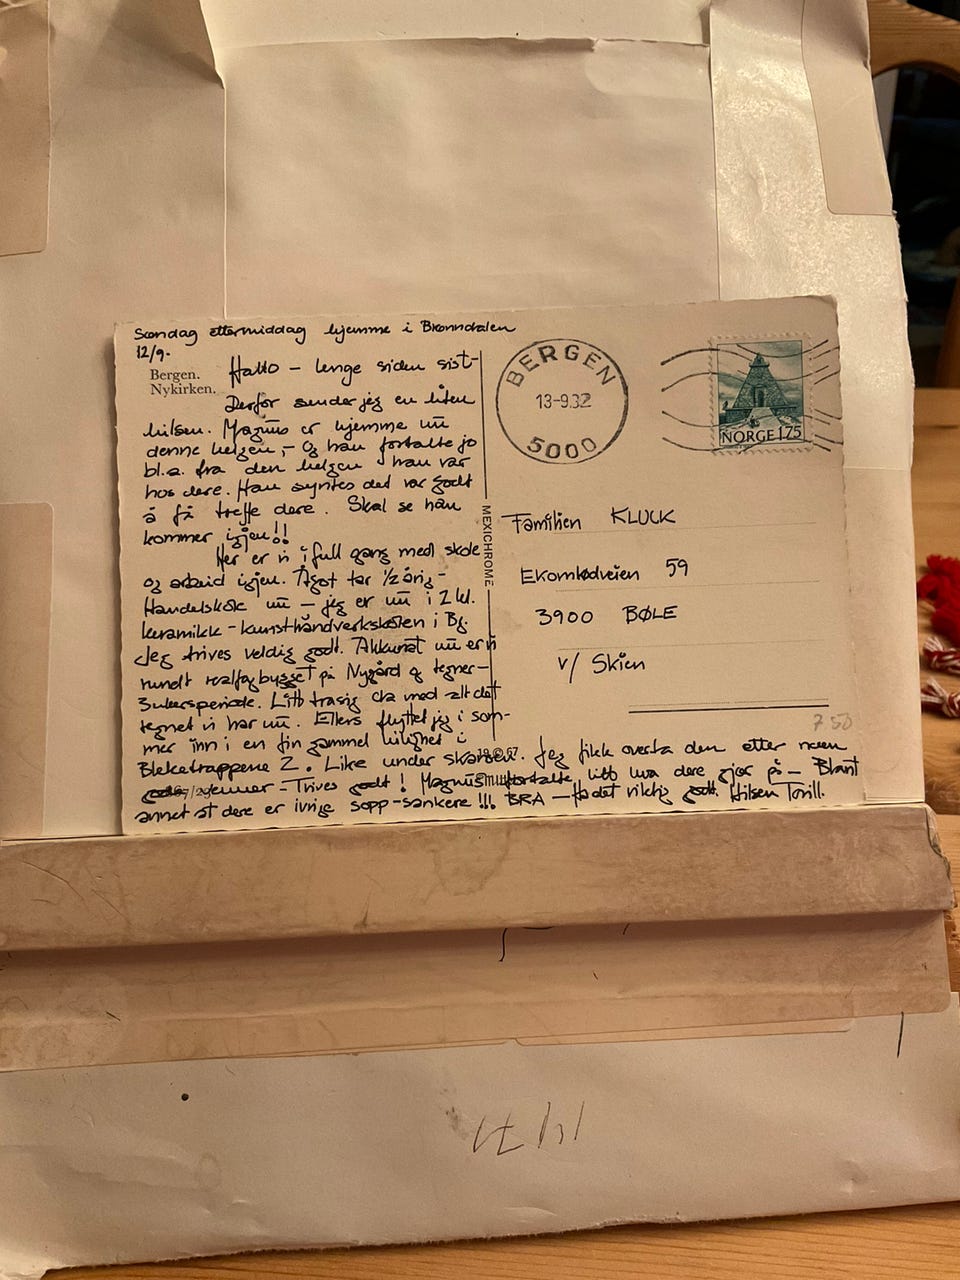 Søndag ettermiddag hjemme i Brønndalen
12/9.
Bergen.
Nykirken.
Hallo - lenge siden sist -
Derfor sender jeg en liten
hilsen. Magnus er hjemme nu
denne helgen, - og han fortalte jo
bl.a. fra den helgen han var
hos dere. Han syntes det var godt
å få treffe dere. Skal se han
kommer igjen!!
Her er vi i full gang med skole
og arbeid igjen. Ågot tar 1/2 årig -
Handelskole nu - jeg er nu i 2 kl.
keramikk - kunsthåndverkskolen i Bg.
Jeg trives veldig godt. Akkurat nu er vi
rundt realfagbygget på Nygård og tegner -
3 ukersperiode. Litt trasig da med alt det
regnet vi har nu. Ellers flyttet jeg i som-
mer inn i en fin gammel leilighet i
Bleketrappene 2. Like under skansen. Jeg fikk overta den etter noen
venner - Trives godt! Magnus fortalte litt hva dere gjør på - Blant
annet at dere er ivrige sopp-sankere!!! BRA - Ha det riktig godt. Hilsen Torill.
MEXICHROME
BERGEN
13-9.82
5000
NORGE 175
Familien KLUCK
Ekornrødveien 59
3900 BØLE
v/ Skien
7 50